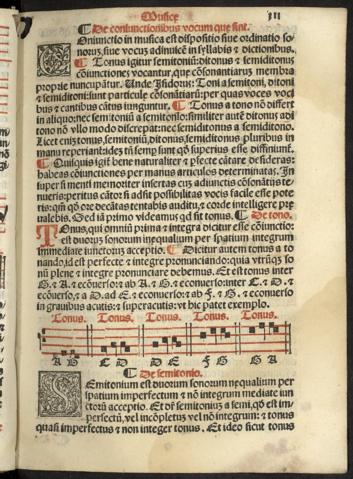 Musice III
De coniunctionibus vocum que sint.
Oniunctio in musica est dispositio siue ordinatio so
norum, siue vocum adinuicē in syllabis & dictionibus.
Tonus igitur semitoniū: ditonus & semiditonus
cōiunctiones vocantur, que cōsonantiarum membra
proprie nuncupātur. Unde Isidorus: Toni & semitoni, ditoni
& semiditoni sunt particule cōsonātiarū per quas voces voci
bus & cantibus cātus iunguntur. Tonus a tono nō differt
in aliquo: nec semitoniū a semitonio: similiter autē ditonus a di
tono nō vllo modo discrepat: nec semiditonus a semiditono.
Licet enis tonus, semitoniū, ditonus, semiditonus pluribus in
manu reperiantur
Quisquis igit̄ bene naturaliter & pfecte cātare desideras:
habeas cōiunctiones per manus articulos determinatas. In
super si menti memoriter insertas cum adiunctis cōsonātiis te-
nueris: peritus cātor si adsit possibilitas vocis facile esse pote
ris: qm̄ q̄ ore decātas tentabis auditu, & corde intelligere pre
ualebis. Sed iā primo videamus qd sit tonus. De tono.
Tonus, qui omniū prima & integra dicitur esse cōiunctio:
est duorum sonorum inequalium per spatium integrum
immediate iunctorum acceptio. Dicitur autem tonus a to
nando, id est perfecte & integre pronunciando: quia vtrūq̄ so
nū plene & integre pronunciare debemus. Et est tonus inter
G. & A. & ecōuerso: & ab A. & G. & econuerso: inter C. & D. &
ecōuerso, & a D. ad E. & econuerso: & ab F. & G. & econuerso
in grauibus acutis: & superacutis: vt hic patet exemplo.
Tonus. Tonus. Tonus. Tonus. Tonus.
A B C D D E F G G A
De semitonio.
SEmitonium est duorum sonorum inequalium per
spatium imperfectum & nō integrum mediate iun
ctorū acceptio. Et dr̄ semitoniū a semi, qd est im-
perfectū, vel incōpletū vel nō integrum: & tonus
quasi imperfectus & non integer tonus. Et ideo sicut tonus